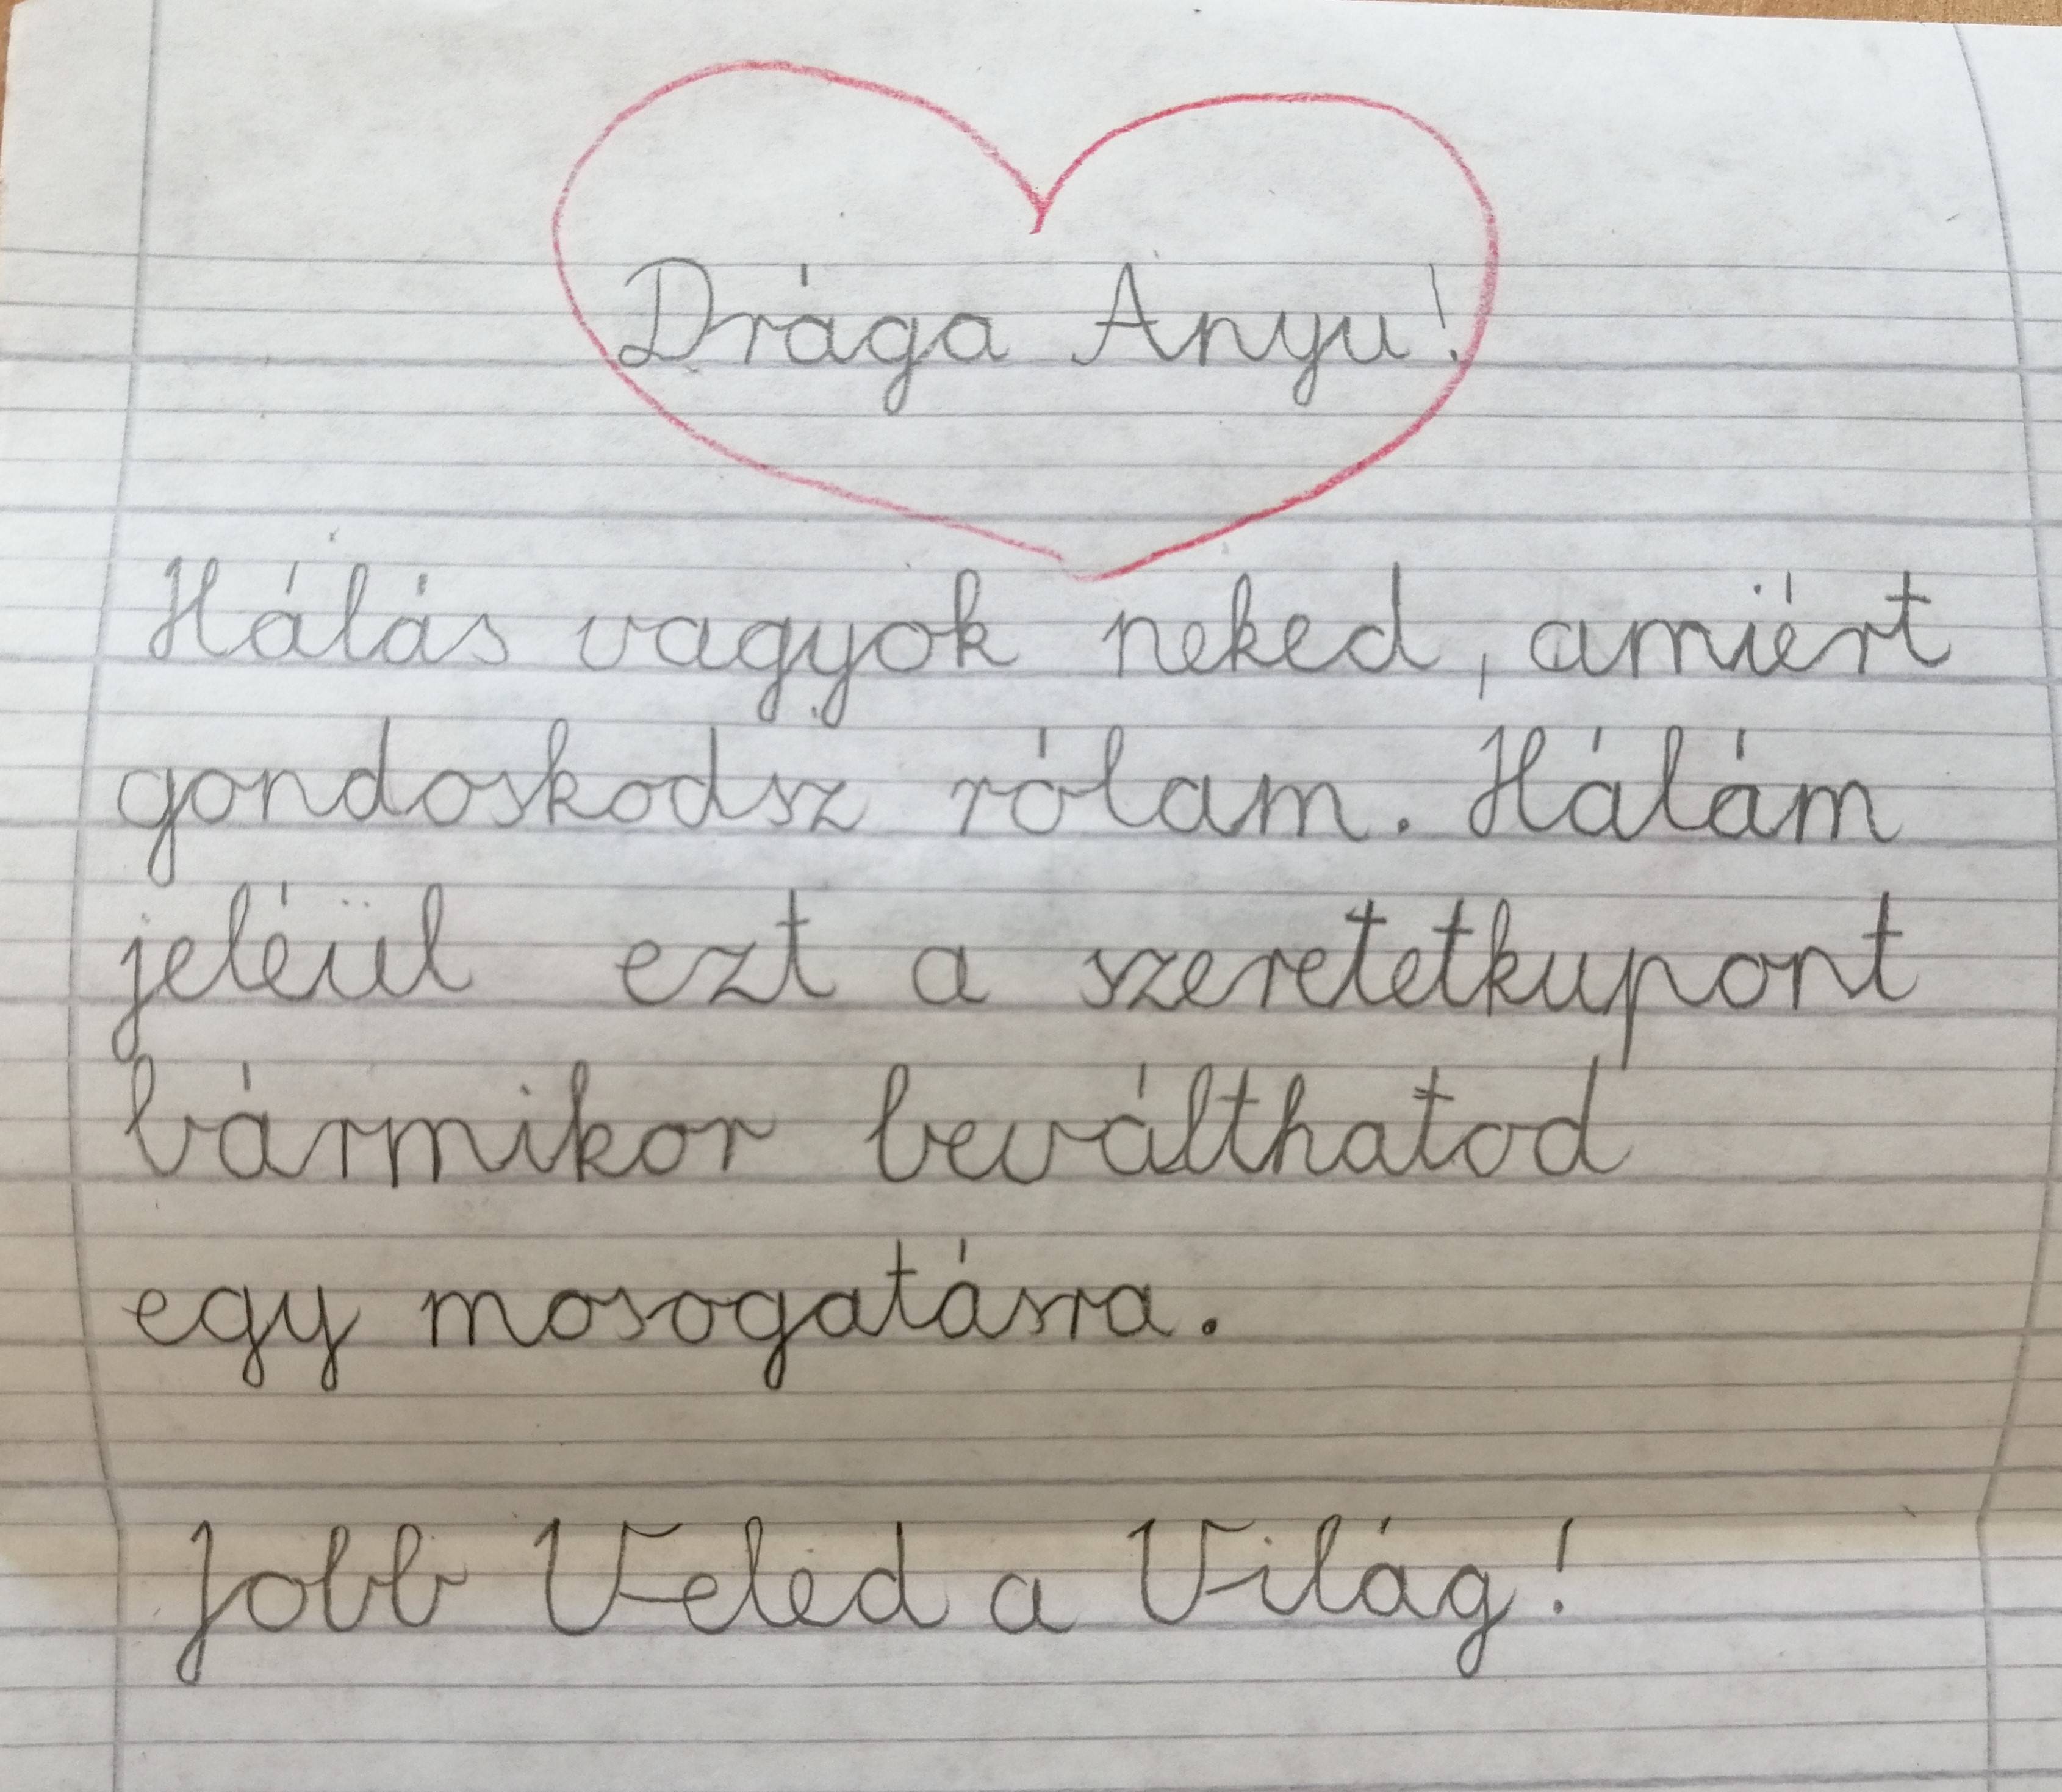 Drága Anyu!
Hálás vagyok neked, amiért
gondoskodsz rólam. Hálám
jeléül ezt a szeretetkupont
bármikor beválthatod
egy mosogatásra.
Jobb Veled a Világ!